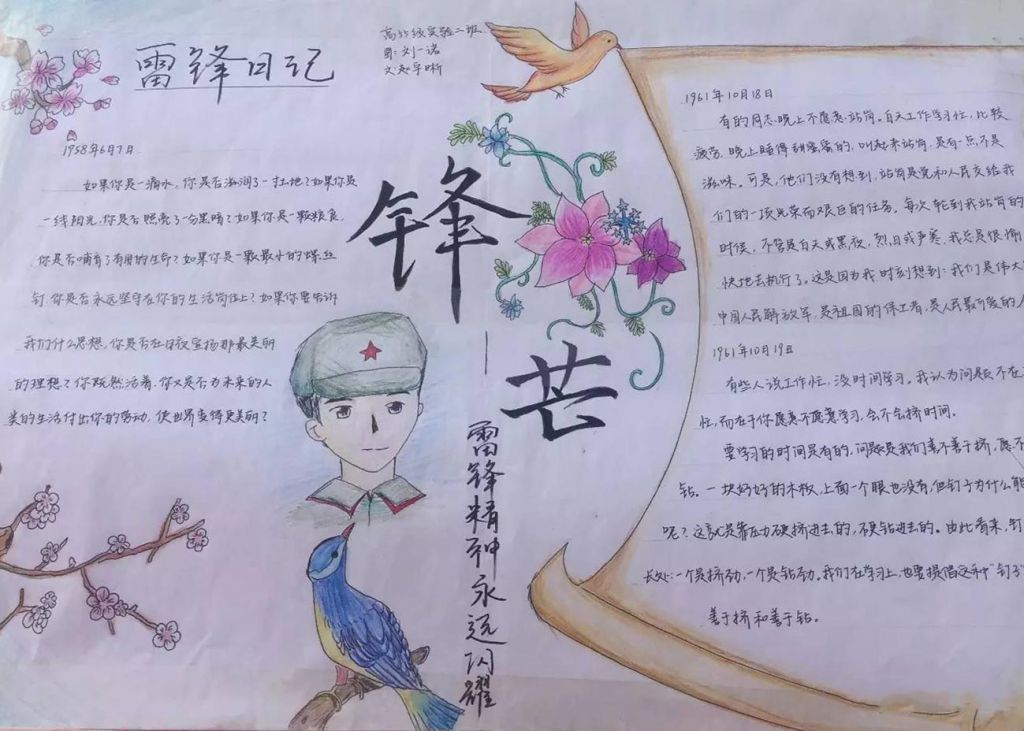 雷锋日记
高北级实验二班
图:刘一诺
文:赵宇晰
1958年6月7日
如果你是一滴水,你是否滋润了一寸土地?如果你是
一线阳光,你是否照亮了一分黑暗?如果你是一颗粮食,
你是否哺育了有用的生命?如果你是一颗最小的螺丝
钉,你是否永远坚守在你的生活岗位上?如果你要告诉
我们什么思想,你是否在日夜宣扬那最美丽
的理想?你既然活着,你又是否为未来的人
类的生活付出你的劳动,使世界变得更美丽?
锋
—
芒
雷锋精神永远闪耀
1961年10月18日
有的同志晚上不愿意站岗。白天工作学习忙,比较
疲劳,晚上睡得甜蜜蜜的,叫起来站岗,是有一点不是
滋味。可是,他们没有想到,站岗是党和人民交给我
们的一项光荣而艰巨的任务。每次轮到我站岗的
时候,不管是白天或黑夜,烈日或严寒,我总是很愉
快地去执行了。这是因为我时刻想到:我们是伟大
中国人民解放军,是祖国的保卫者,是人民最可爱的人
1961年10月19日
有些人说工作忙,没时间学习。我认为问题不在
忙,而在于你愿意不愿意学习,会不会挤时间。
要学习的时间是有的,问题是我们善不善于挤,愿不
钻。一块好好的木板,上面一个眼也没有,但钉子为什么能
呢?这就是靠压力硬挤进去的,硬钻进去的。由此看来,钉
长处:一个是挤劲,一个是钻劲。我们在学习上,也要提倡这种"钉子"
善于挤和善于钻。